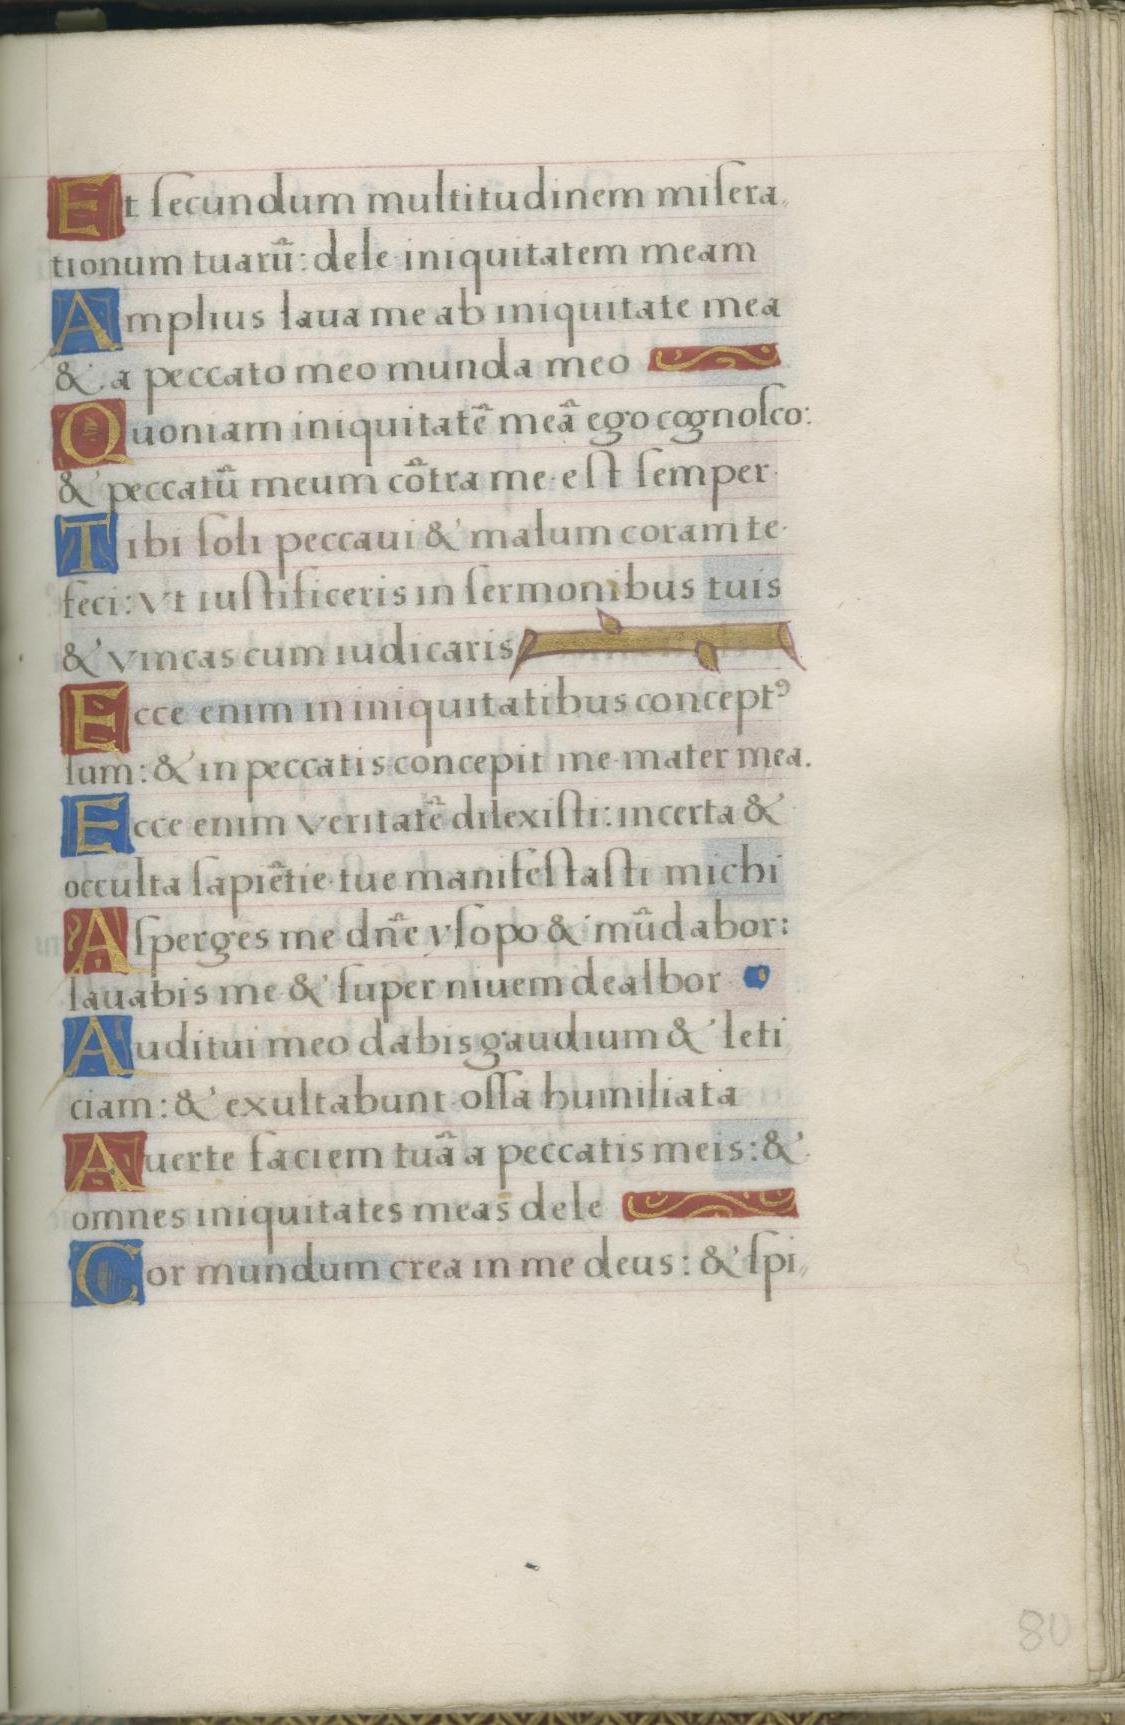 Et ſecundum multitudinem miſera,
tionum tuarū: dele iniquitatem meam
Amplius laua me ab iniquitate mea
& a peccato meo munda meo
Quoniam iniquitatē meā ego cognoſco:
& peccatū meum cōtra me est ſemper
Tibi ſoli peccaui & malum coram te
feci: vt iuſtificeris in ſermonibus tuis
& vincas cum iudicaris
Ecce enim in iniquitatibus conceptꝰ
ſum: & in peccatis concepit me mater mea.
Ecce enim veritatē dilexiſti: incerta &
occulta ſapiētie tue manifeſtaſti michi
Aſperges me dn̄e yſopo & mūdabor:
lauabis me & ſuper niuem dealbor
Auditui meo dabis gaudium & leti
ciam: & exultabunt oſſa humiliata
Auerte faciem tuā a peccatis meis: &
omnes iniquitates meas dele
Cor mundum crea in me deus: & ſpi,,
80